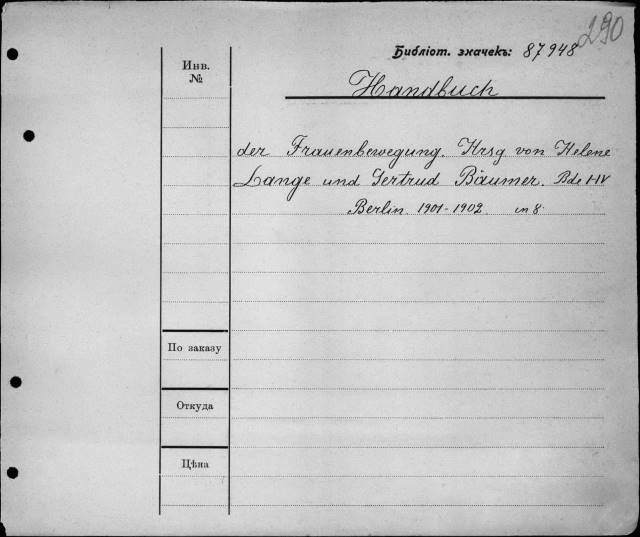 290
Библіот. значекъ: 87948
Инв.
№
Handbuch
der Frauenbewegung. Hrsg von Helene
Lange und Gertrud Bäumer. Bde I-IV
Berlin. 1901-1902 in 8.
По заказу
Откуда
Цѣна